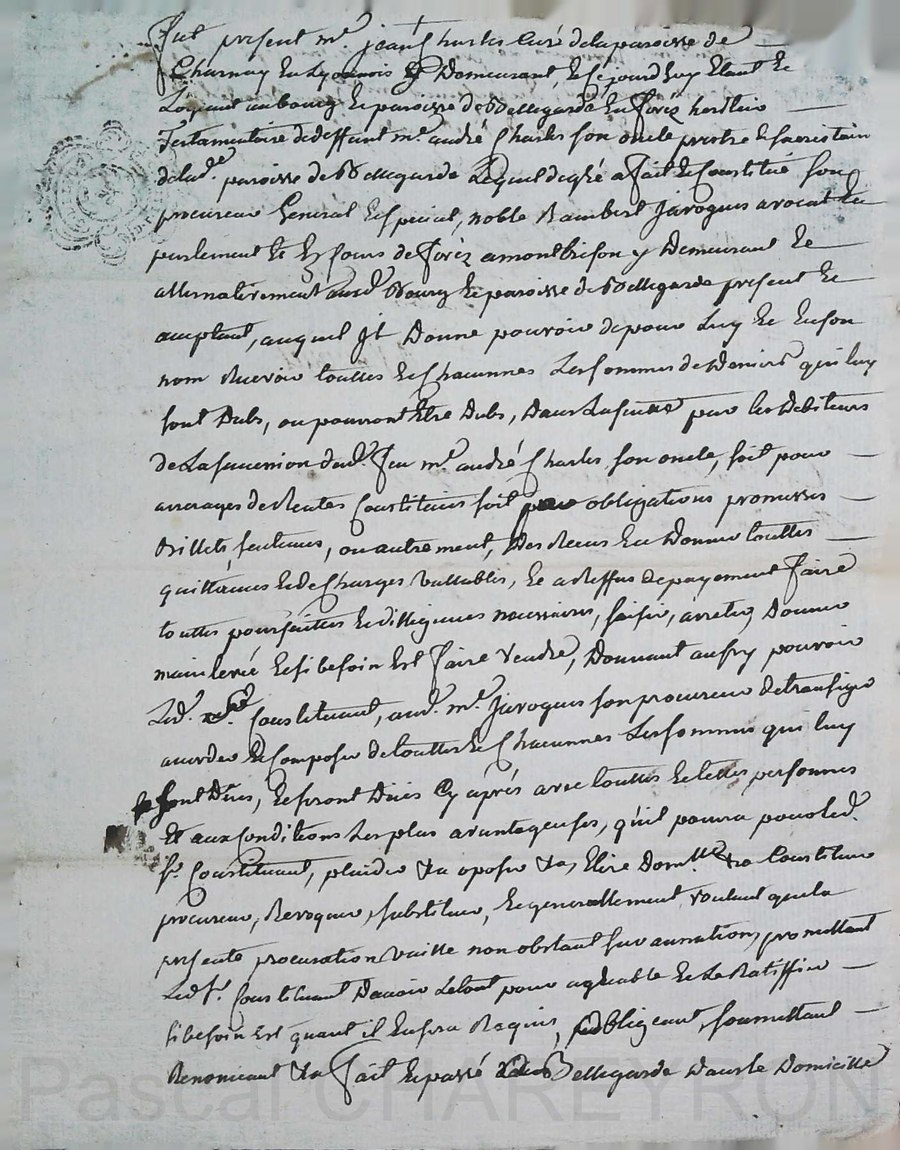 Fut present mr. jean Charles Curé de la paroisse de
Charnay en Lyonnois y Demeurant, & ce jourd'huy Etant &
au bourg & paroisse de Bellegarde en Forez heritier
Testamentaire de deffunt mr. andré Charles son oncle prestre & sacristain
de lad.e paroisse de Bellegarde Lequel de gré a fait & Constitué son
procureur General & special, noble Rambert Jaroquis avocat en
parlement & Es Cours de forez a montbrison y Demeurant &
alternativement aud. Bourg & paroisse de Bellegarde present &
acceptant, auquel Jl Donne pouvoir de pour Luy & en son
nom Recevoir touttes & Chacunnes Les sommes de Deniers qui luy
sont Dubs, ou pourront Etre Dubs, Dans La suitte par les Debiteurs
de La succession dud. feu mr. andré Charles son oncle, soit pour
arrerages de Rentes Constitués soit par obligations promesses
Billets, sentences, ou autrement, Des Receus En Donner touttes
quittances & decharges vallables, & a Reffus de payement faire
touttes poursuittes & dilligences necessaires, saisir, arreter, Donner
main levée & si besoin Est faire vendre, Donnant aussy pouvoir
Led. sr. Constituant, aud. mr. Jaroquis son procureur de transiger
accorder & Composer de touttes & Chacunnes Les sommes qui luy
sont Dües, & seront Dües Cy après avec touttes & telles personnes
Et aux Conditions Les plus avantageuses, qu'il pourra pour led.
sr. Constituant, plaider &a oposer &a, Elire Dom.lle &a Constituer
procureur, Revoquer, substituer, & generallement, voulant que la
presente procuration vaille non obstant surannation, promettant
Led. sr. Constituant D'avoir Le tout pour agreable & Le Ratiffier
si besoin Est quant il En sera Requis, obligeant, soumettant
Renonceant &a Fait & passé Bellegarde Dans le Domicille
Pascal CHAREYRON